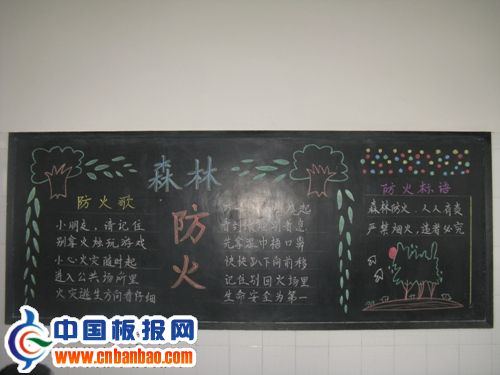 森林
防火
防火歌
小朋友，请记住
别拿火烛玩游戏
小心火灾随时起
进入公共场所里
火灾逃生方向看仔细
起
看到
先拿湿巾捂口鼻
快快趴下向前移
记住别回火场里
生命安全为第一
防火标语
森林防火，人人有责
严禁烟火，违者必究
中国板报网
www.cnbanbao.com